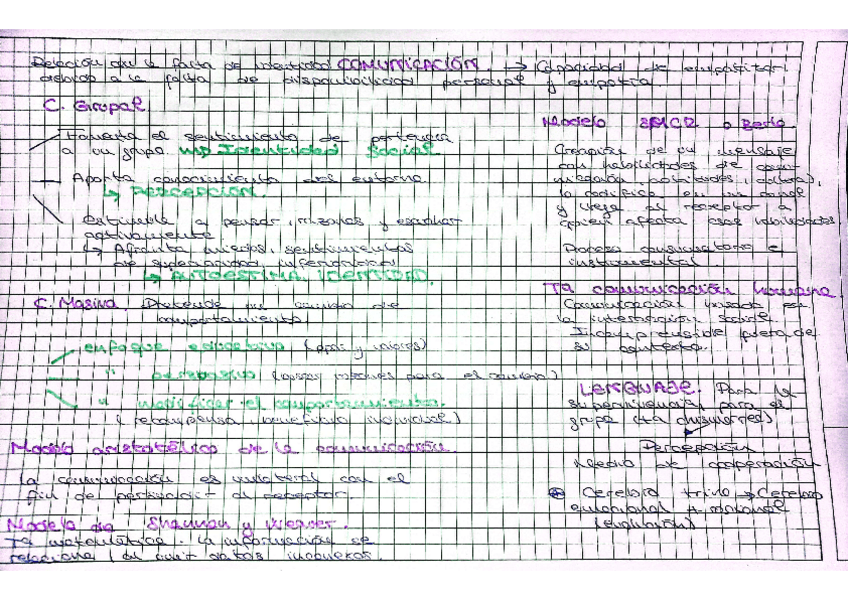 Relación con la falta de identidad COMUNICACIÓN → Capacidad de
debido a la falta de personal y empatía.
C. Grupal
Fomenta el sentimiento de pertenencia
a un grupo Identidad Social
Aporta conocimiento del entorno
↳ PERCEPCIÓN.
Estimula a pensar, razonar y escuchar
activamente
↳ Afronta miedos, sentimientos
de
↳ AUTOESTIMA, IDENTIDAD.
C. Masiva. Pretende un cambio de
comportamiento
enfoque educativo
" persuasivo (para el cambio)
" modificar el comportamiento.
(recompensa, beneficio individual)
Modelo aristotélico de la comunicación
La comunicación es unilateral con el
fin de persuadir al receptor.
Modelo de Shannon y Weaver.
Tª matemática. La información se
relaciona
Modelo SMCR o Berlo.
Creación de un mensaje
con habilidades de comu-
nicación, actitudes, cultura),
lo codifica en un canal
y llega al receptor a
quien afecta esas habilidades
Proceso consumatorio e
instrumental
Tª comunicación humana
Comunicación basada en
la interacción social.
Incomprensible fuera de
su contexto.
LENGUAJE. Para la
supervivencia, para el
grupo
Percepción
Medio de cooperación
Cerebro trino → Cerebro
emocional + racional
(evolución)